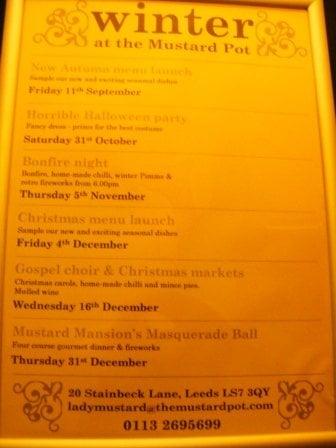 winter
at the Mustard Pot
New Autumn menu launch
Sample our new and exciting seasonal dishes
Friday 11th September
Horrible Halloween party
Fancy dress - prizes for the best costume
Saturday 31st October
Bonfire night
Bonfire, home-made chilli, winter Pimms &
retro fireworks from 6.00pm
Thursday 5th November
Christmas menu launch
Sample our new and exciting seasonal dishes
Friday 4th December
Gospel choir & Christmas markets
Christmas carols, home-made chilli and mince pies.
Mulled wine
Wednesday 16th December
Mustard Mansion's Masquerade Ball
Four course gourmet dinner & fireworks
Thursday 31st December
20 Stainbeck Lane, Leeds LS7 3QY
ladymustard@themustardpot.com
0113 2695699